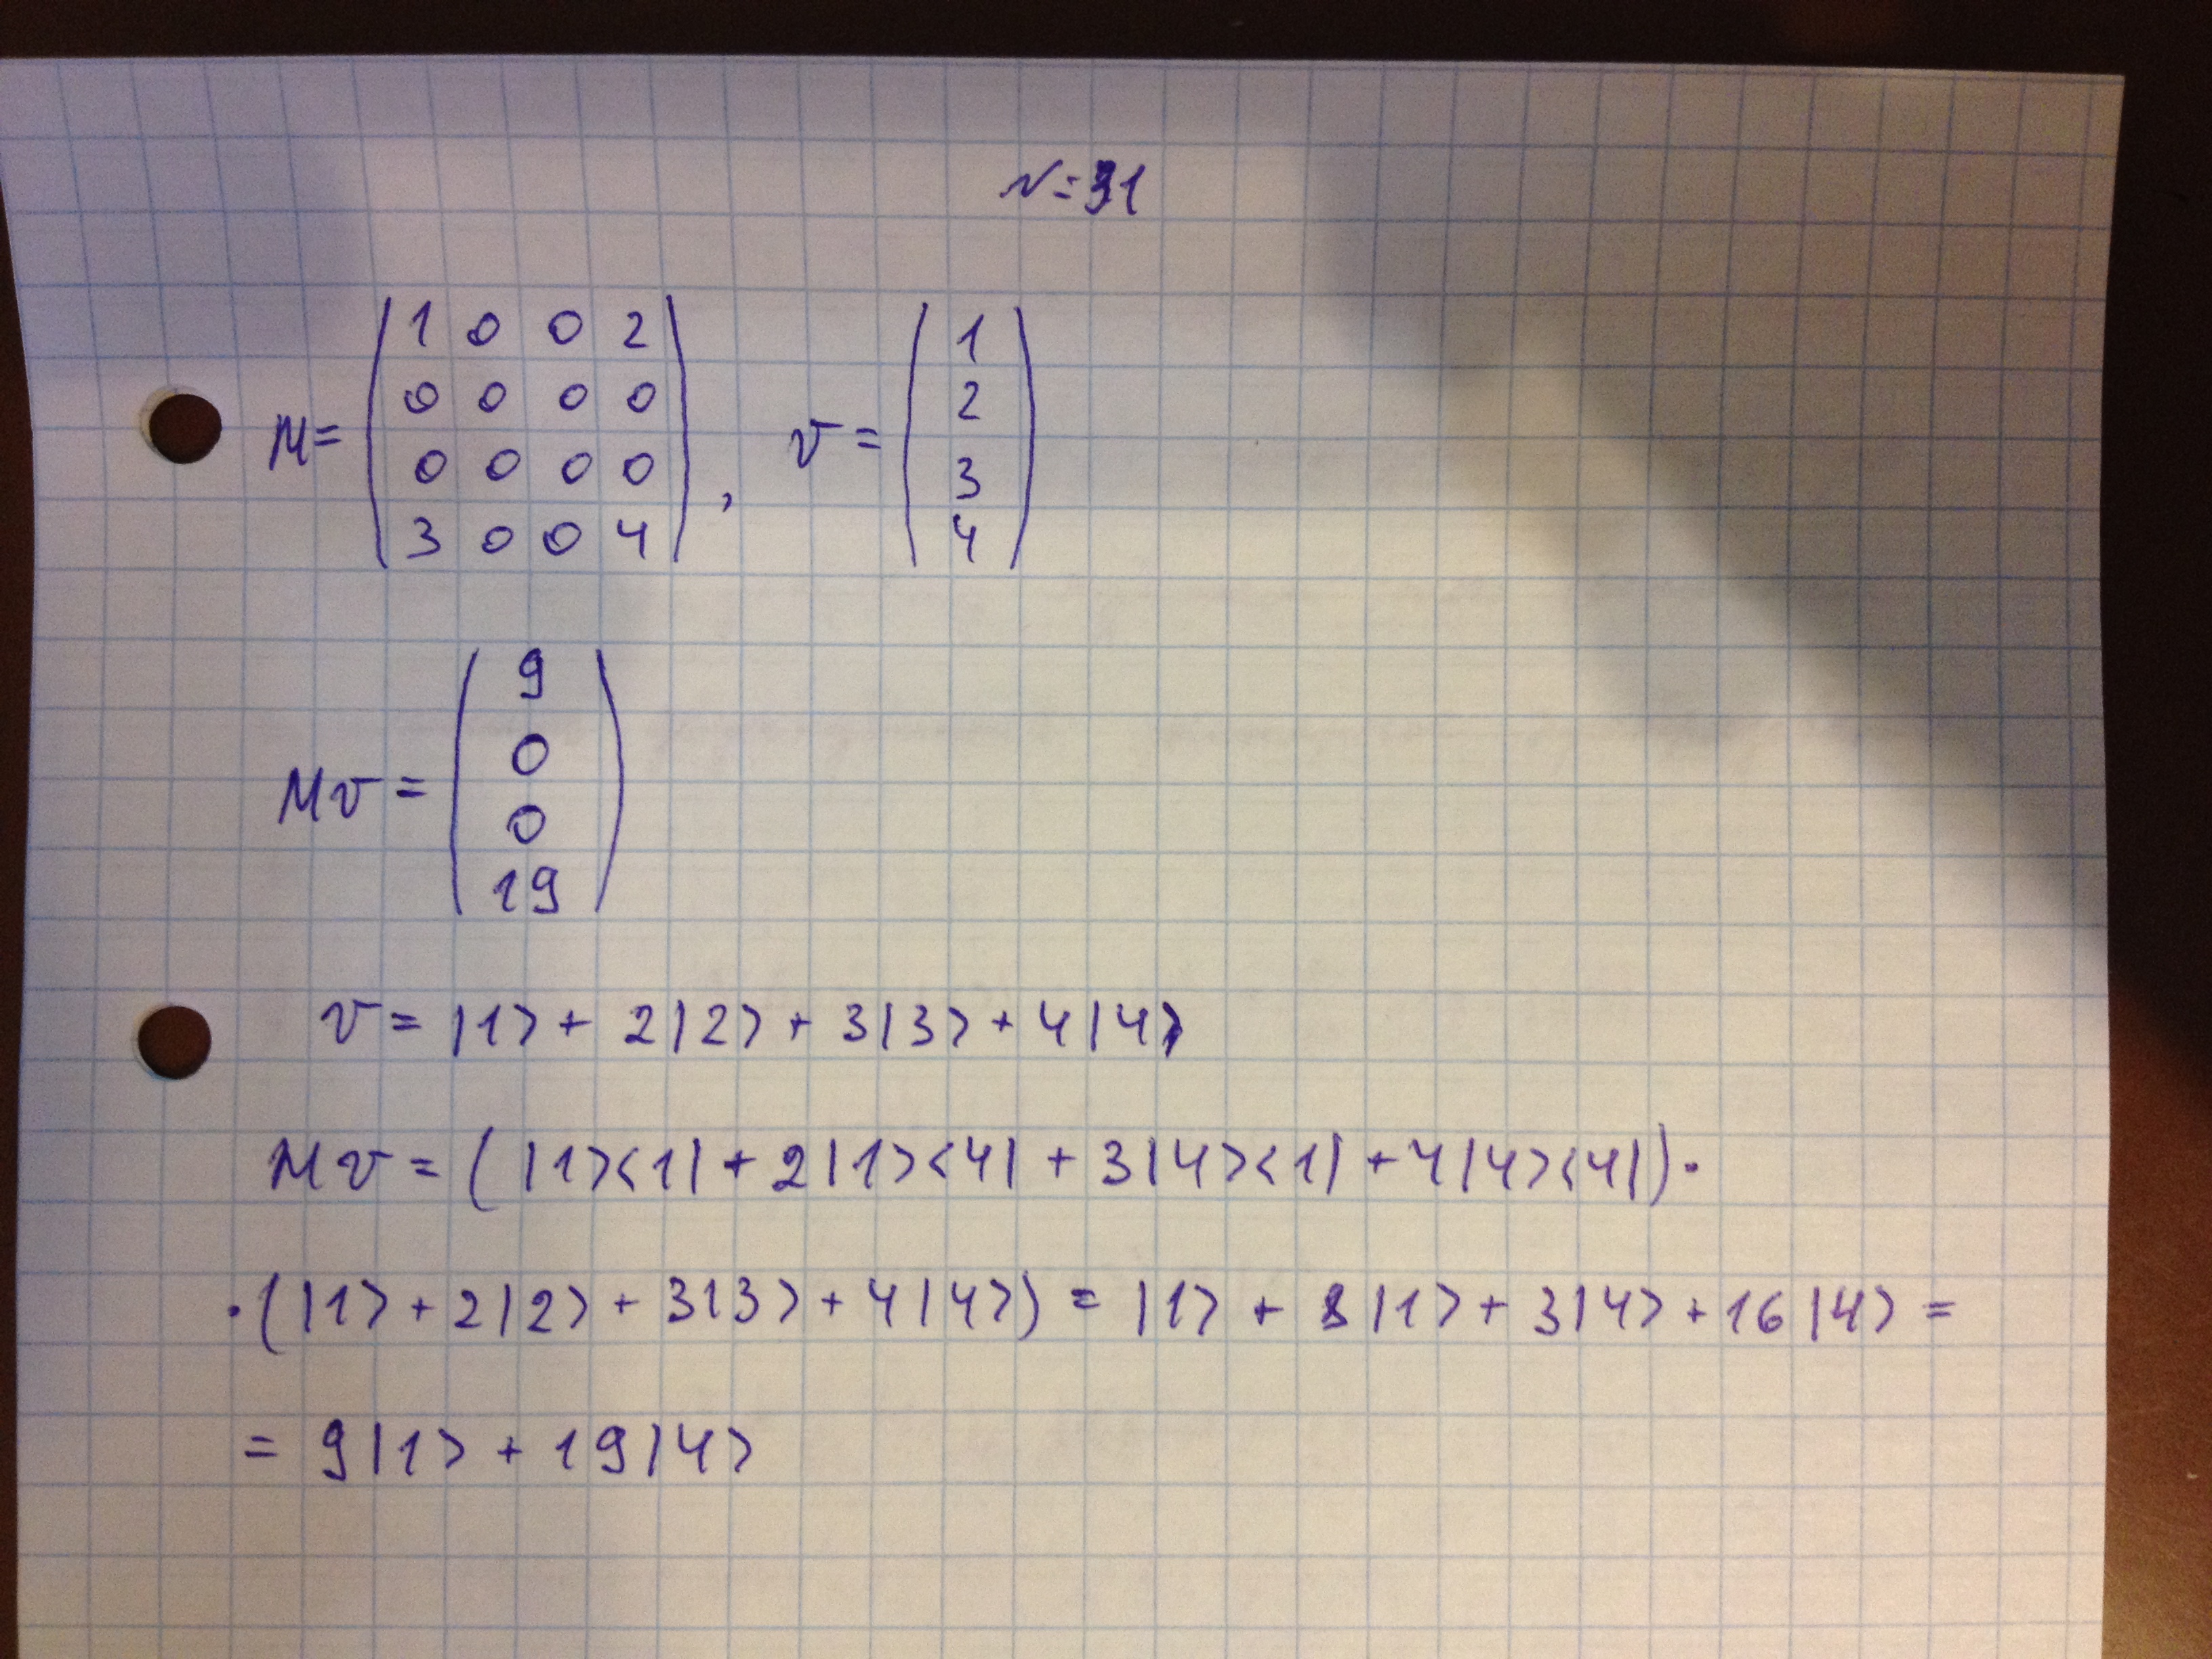 N=31
M= ( 1 0 0 2
0 0 0 0
0 0 0 0
3 0 0 4 ) , v = ( 1
2
3
4 )
Mv = ( 9
0
0
19 )
v = |1> + 2|2> + 3|3> + 4|4>
Mv = ( |1><1| + 2|1><4| + 3|4><1| + 4|4><4| ) ·
· ( |1> + 2|2> + 3|3> + 4|4> ) = |1> + 8|1> + 3|4> + 16|4> =
= 9|1> + 19|4>